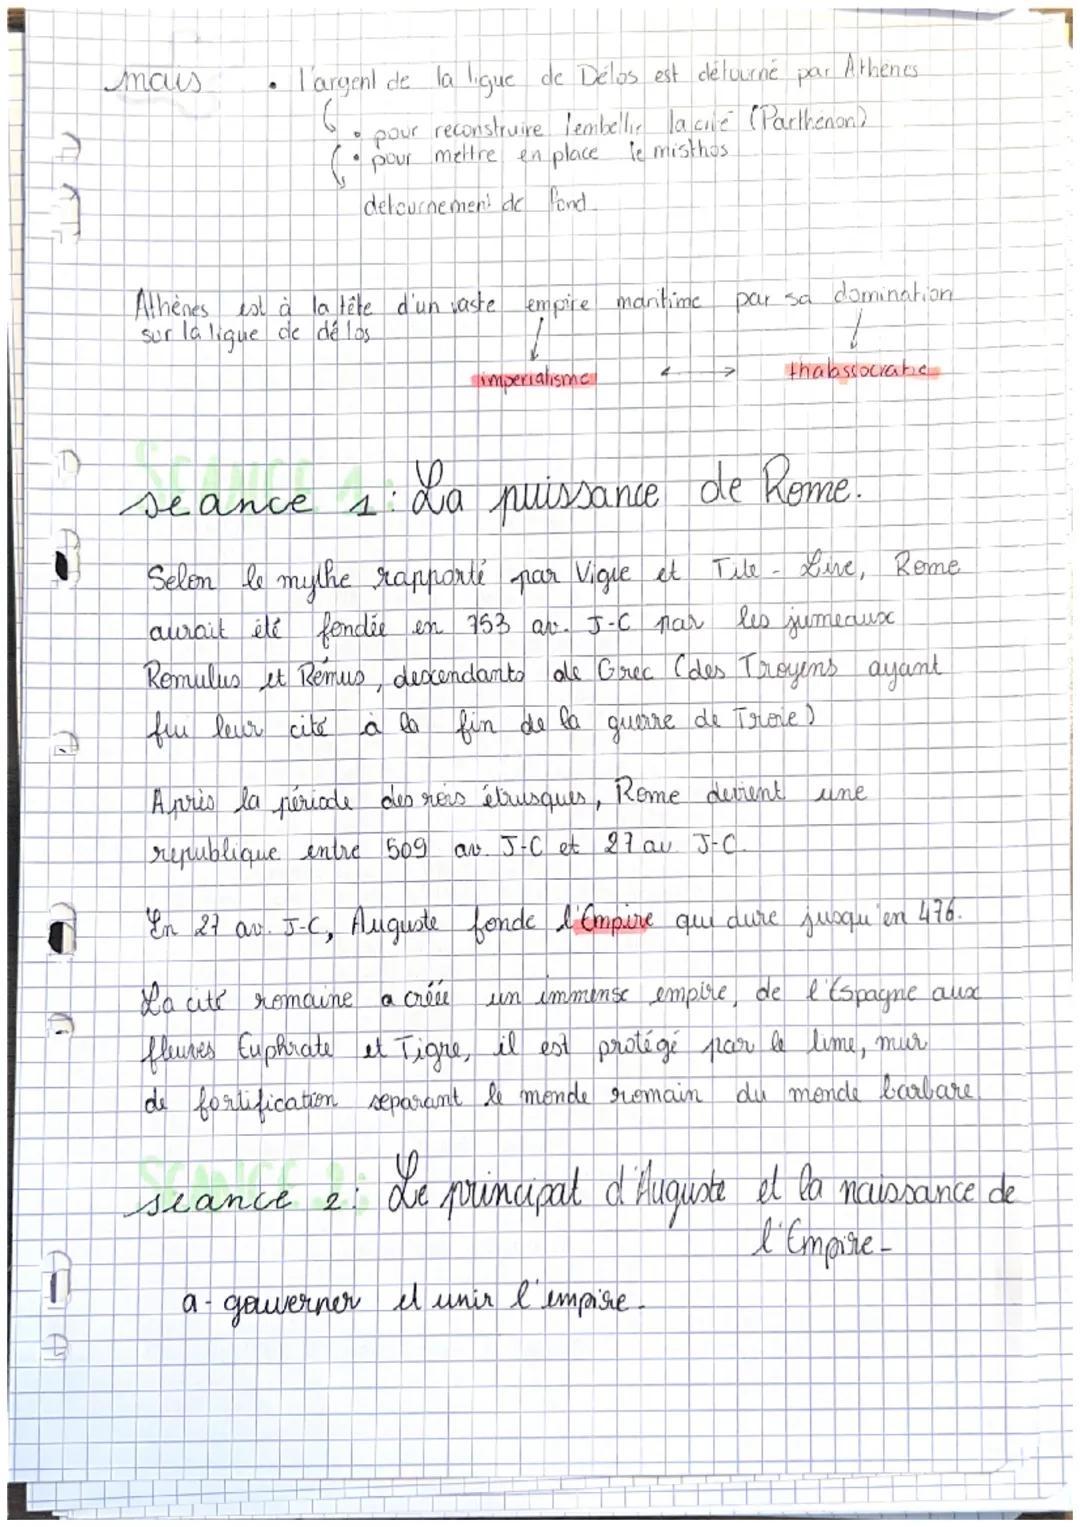 mais • l'argent de la ligue de Délos est détourné par Athènes
• pour reconstruire l'embellir la cité (Parthénon)
• pour mettre en place le misthos
detournement de fond
Athènes est à la tête d'un vaste empire maritime par sa domination
sur la ligue de délos
imperialisme ↔ thabssocratie
SEANCE 1:
seance 1: La puissance de Rome.
Selon le mythe rapporté par Vigie et Tite-Live, Rome
aurait été fondée en 753 av. J-C par les jumeaux
Romulus et Rémus, descendants de Grec (des Troyens ayant
fui leur cité à la fin de la guerre de Troie)
Après la période des rois étrusques, Rome devient une
republique entre 509 av. J-C et 27 av J-C.
En 27 av. J-C, Auguste fonde l'Empire qui dure jusqu'en 476.
La cité romaine a créée un immense empire, de l'Espagne aux
fleuves Euphrate et Tigre, il est protégé par le lime, mur
de fortification separant le monde romain du monde barbare
SEANCE 2:
seance 2: Le principat d'Auguste et la naissance de
l'Empire-
a- gouverner et unir l'empire-